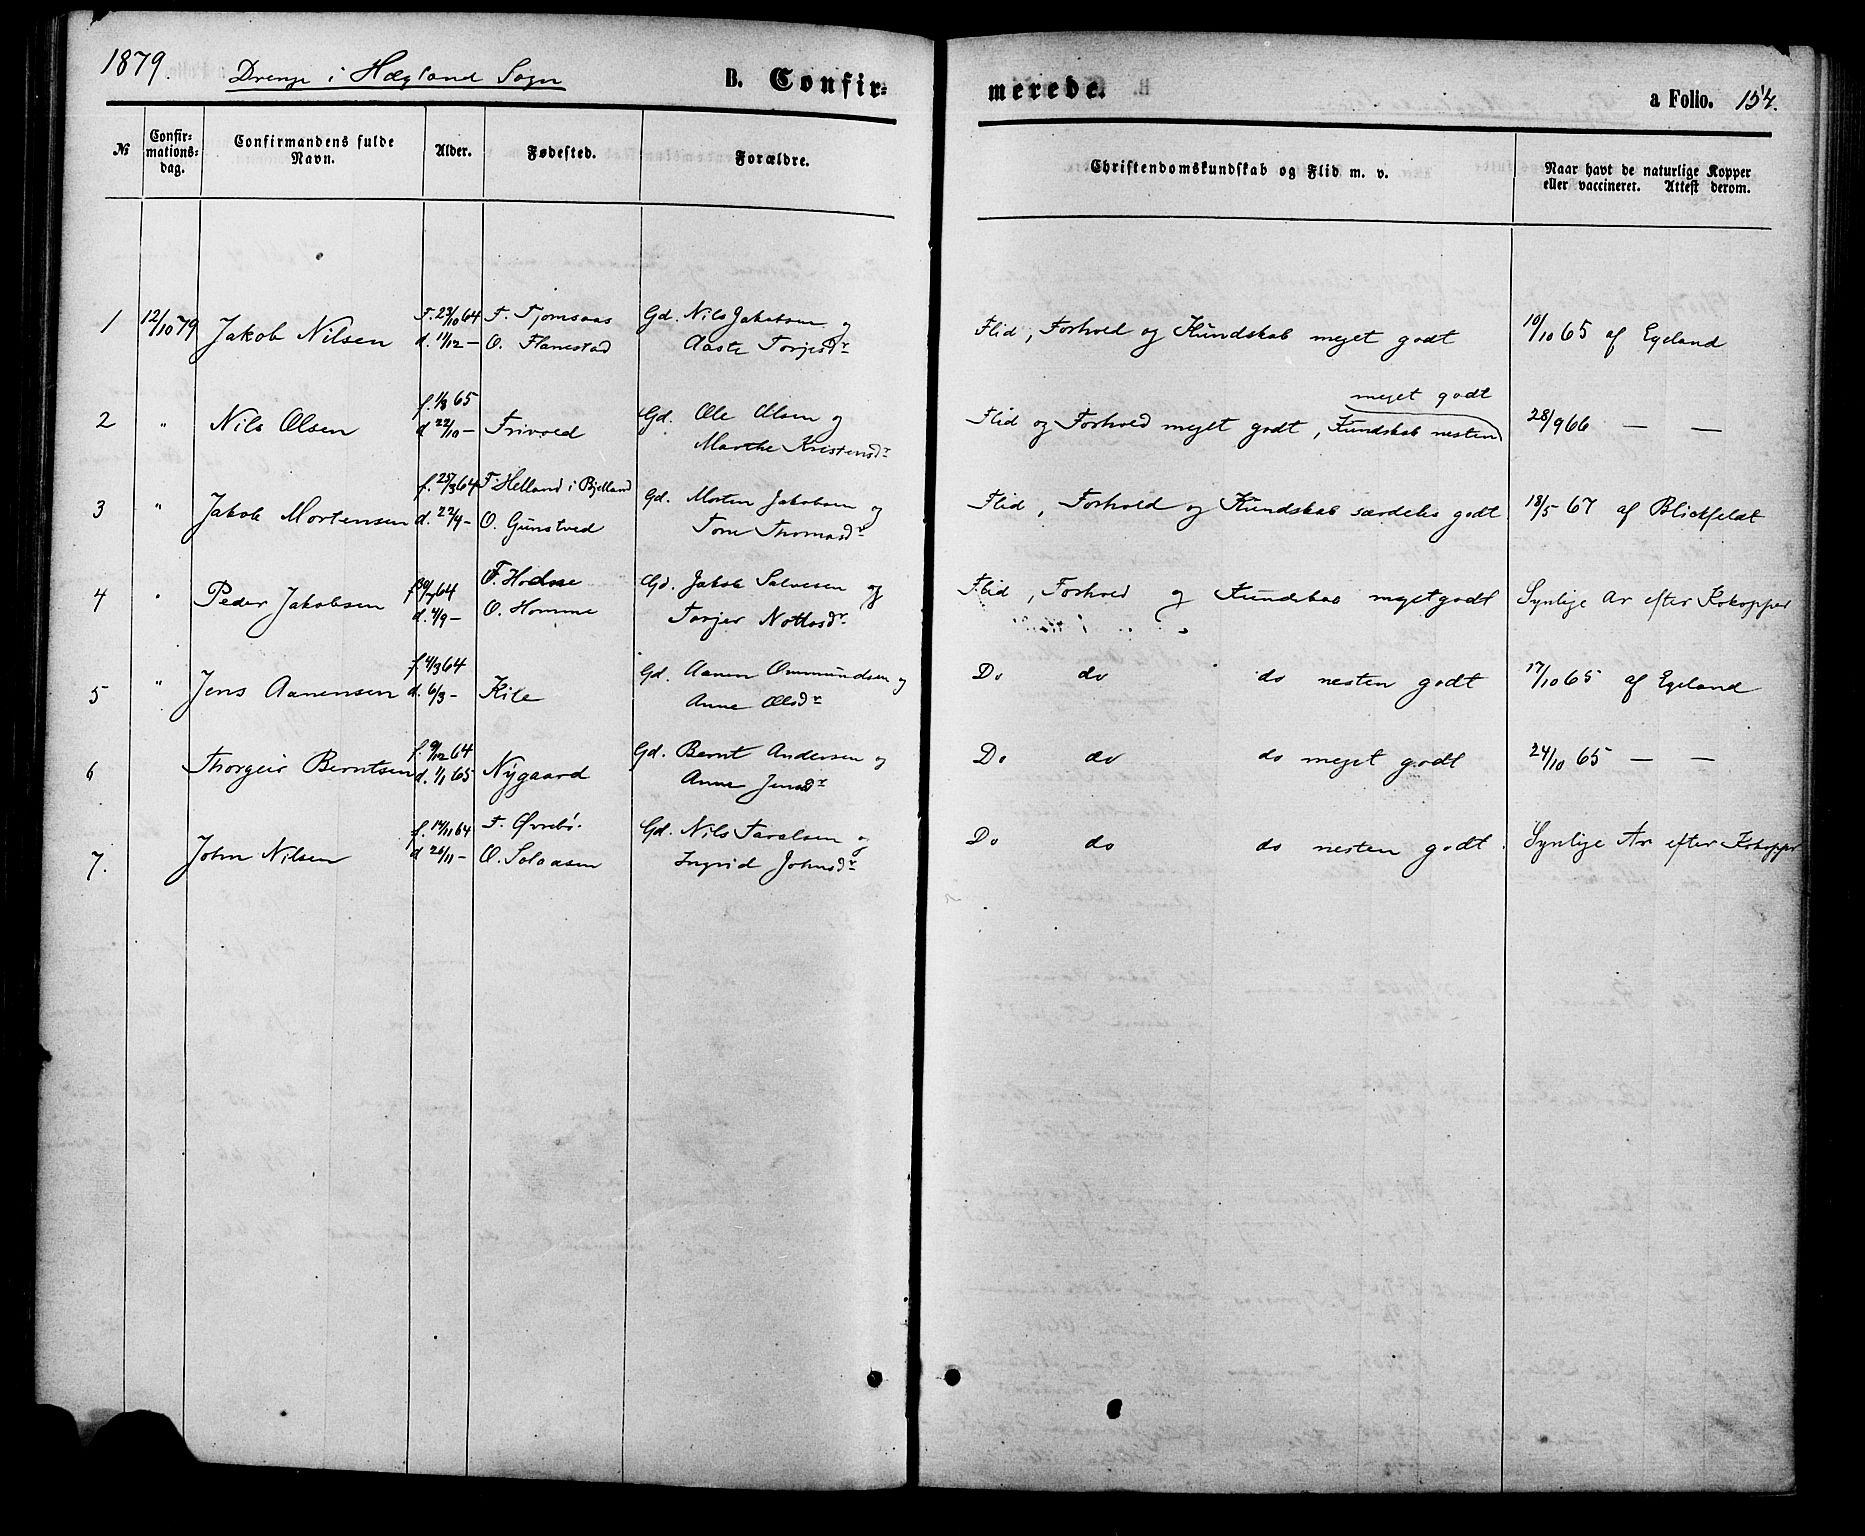 1879. Drenge i Hægland Sogn B. Confir= merede. a Folio. 154.
№ Confir=mations=dag. Confirmandens fulde Navn. Alder. Fødested. Forældre. Christendomskundskab og Flid m. v. Naar havt de naturlige Kopper eller vaccineret. Attest derom.
1 12/10 79 Jakob Nilsen F. 23/10 64 F. Tjomsaas Gd. Nils Jakobsen og Flid, Forhold og Kundskab meget godt 10/10 65 af Egeland
d. 11/12 — O. Flanestad Aaste Torjesdr
2 " Nils Olsen f. 1/8 65 Trivold Gd. Ole Olsen og Flid og Forhold meget godt, Kundskab nesten meget godt 28/9 66 — —
d 22/10 — Marthe Kristensdr
3 " Jakob Mortensen f. 25/3 64 F. Helland i Bjelland Gd. Morten Jakobsen og Flid, Forhold og Kundskab særdeles godt 18/5 67 af Blickfeldt
d. 22/4 — O. Gunstved Tone Thomasdr
4 " Peder Jakobsen 64 F. Hodne Gd. Jakob Salvesen og Flid, Forhold og Kundskab meget godt Synlige Ar efter Kokopper
d. 4/9 — O. Homme Torjer Nottosdr
5 " Jens Aanensen f. 4/3 64 Kile Gd. Aanen Ommundsen og Do do do nesten godt 17/10 65 af Egeland
d. 6/3 — Anne Olsdr
6 Thorgeir Berntsen f. 9/12 64 Nygaard Gd. Bernt Andersen og Do do do meget godt 24/10 65 — —
d. 1/1 65 Anne Jensdr
7. John Nilsen f. 14/11 64 F. Øvrebø. Gd. Nils Taralsen og Do do do nesten godt. Synlige Ar efter Kokopper
d 26/11 — O. Solaasen Ingrid Johnsdr